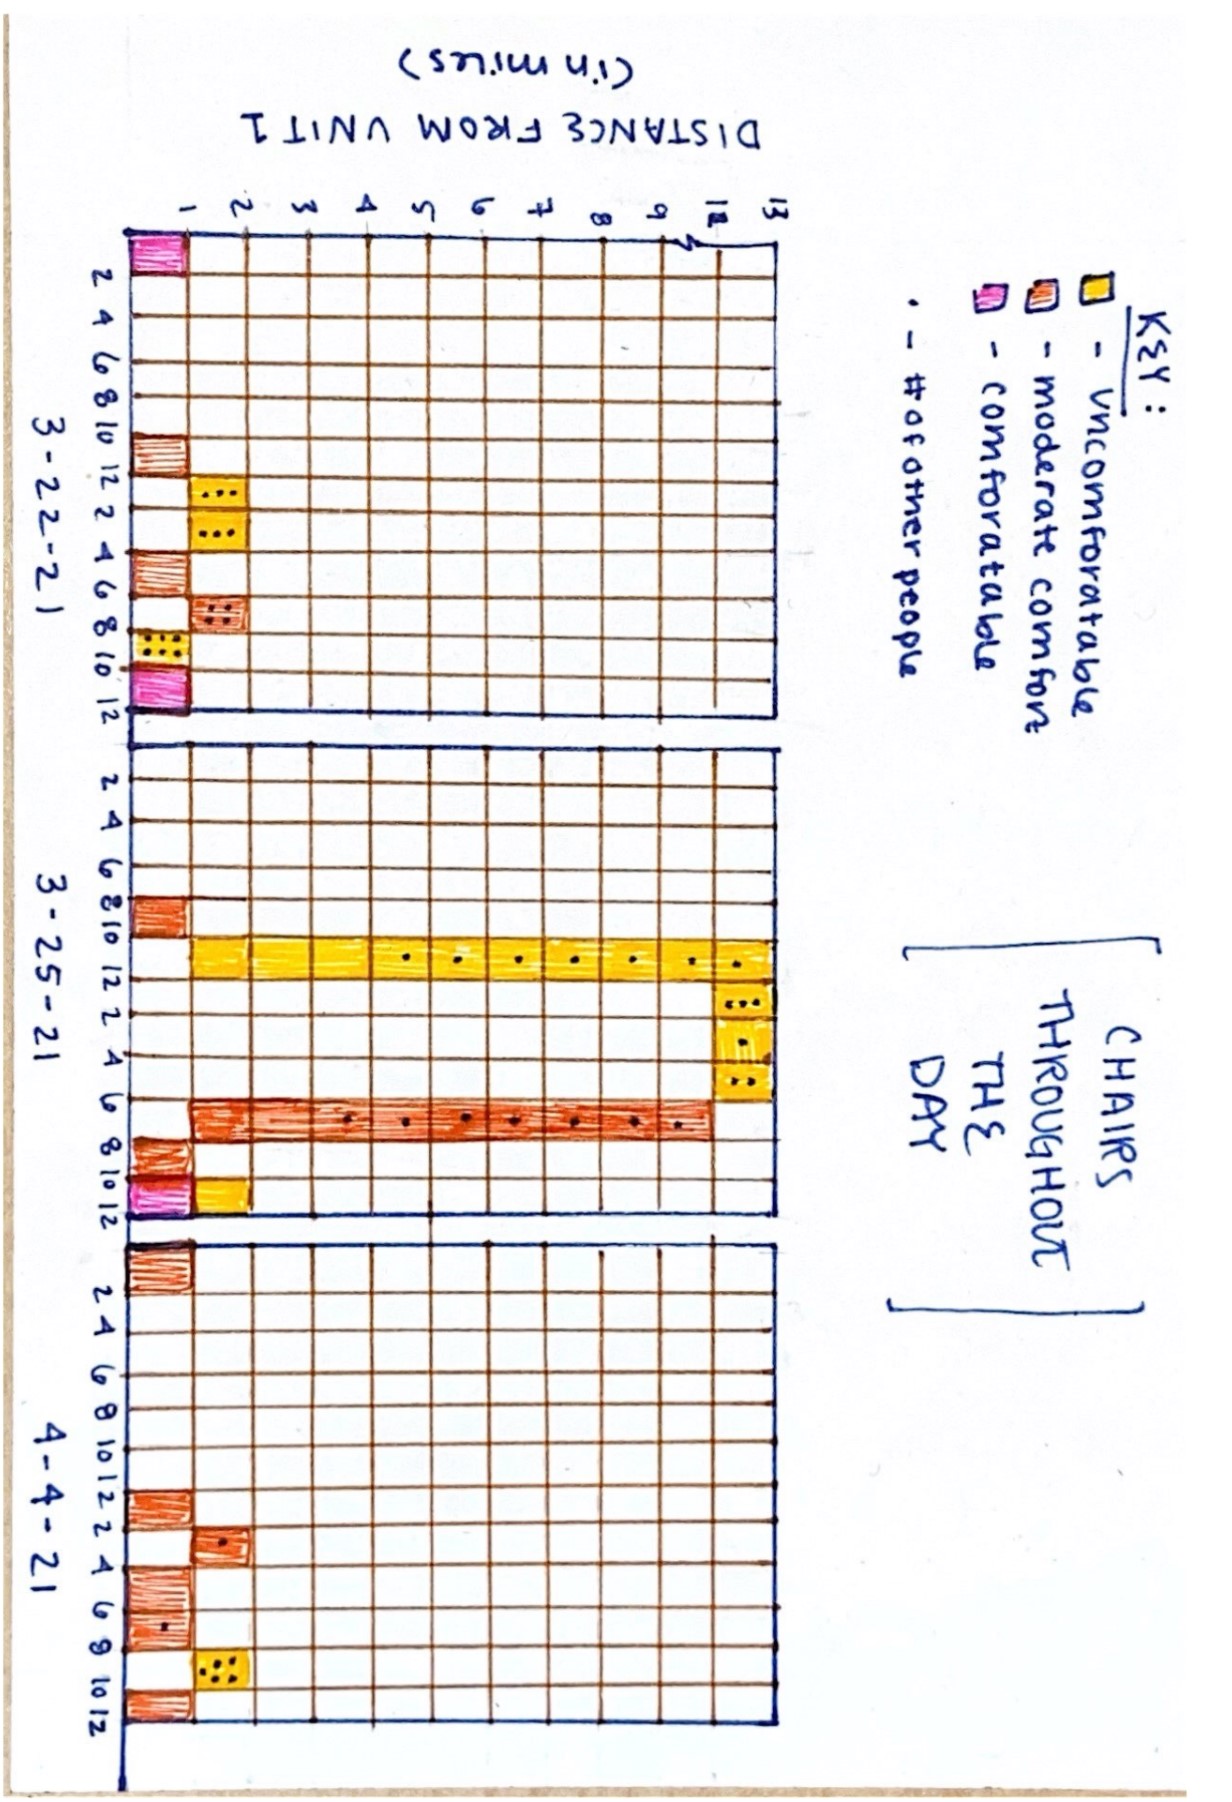 KEY :
- uncomforatable
- moderate comfort
- comforatable
. - # of other people
CHAIRS
THROUGHOUT
THE
DAY
DISTANCE FROM UNIT 1
(in miles)
13
9
8
7
6
5
4
3
2
1
2 4 6 8 10 12 2 4 6 8 10 12
2 4 6 8 10 12 2 4 6 8 10 12
2 4 6 8 10 12 2 4 6 8 10 12
3-22-21
3-25-21
4-4-21